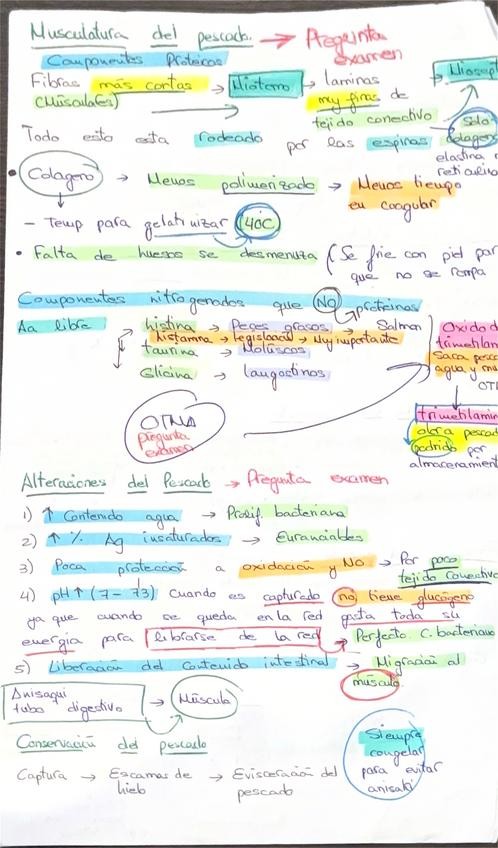 Musculatura del pescado. → Pregunta examen
Componentes Proteicos
Fibras más cortas → Miotomo → laminas → Miosept
(Músculares) muy finas de
tejido conectivo Solo
Todo esto esta rodeado por las espinas colageno
elastina y
reticulina
• Colageno → Menos polimerizado → Menos tiempo
en coagular
- Temp para gelatinizar 40C
• Falta de huesos se desmenuza (Se frie con piel par
que no se rompa
Componentes nitrogenados que NO proteinas
Aa libre histina → Peces grasos → Salmon
histamna → legislación → Muy importante
taurina → Moluscos
Glicina → langostinos
Oxido d
trimetilam
Saca pesca
agua y mu
OT
OTMA
Pregunta
examen
trimetilamin
olor a pescad
podrido por
almacenamient
Alteraciones del Pescado → Pregunta examen
1) ↑ Contenido agua → Prolif. bacteriana
2) ↑ % Ag insaturados → Euranciables
3) Poca protección a oxidación y NO → Por poco
tejido conectivo
4) pH ↑ (7 - 7'3) Cuando es capturado no tiene glucógeno
ya que cuando se queda en la red gasta toda su
energia para librarse de la red → Perfecto. C. bacteriano
5) Liberación del Contenido intestinal → Migración al
músculo.
Anisaqui
tubo digestivo → Músculo
Conservación del pescado
Siempre
congelar
para evitar
anisaki
Captura → Escamas de → Evisceración del
hielo pescado